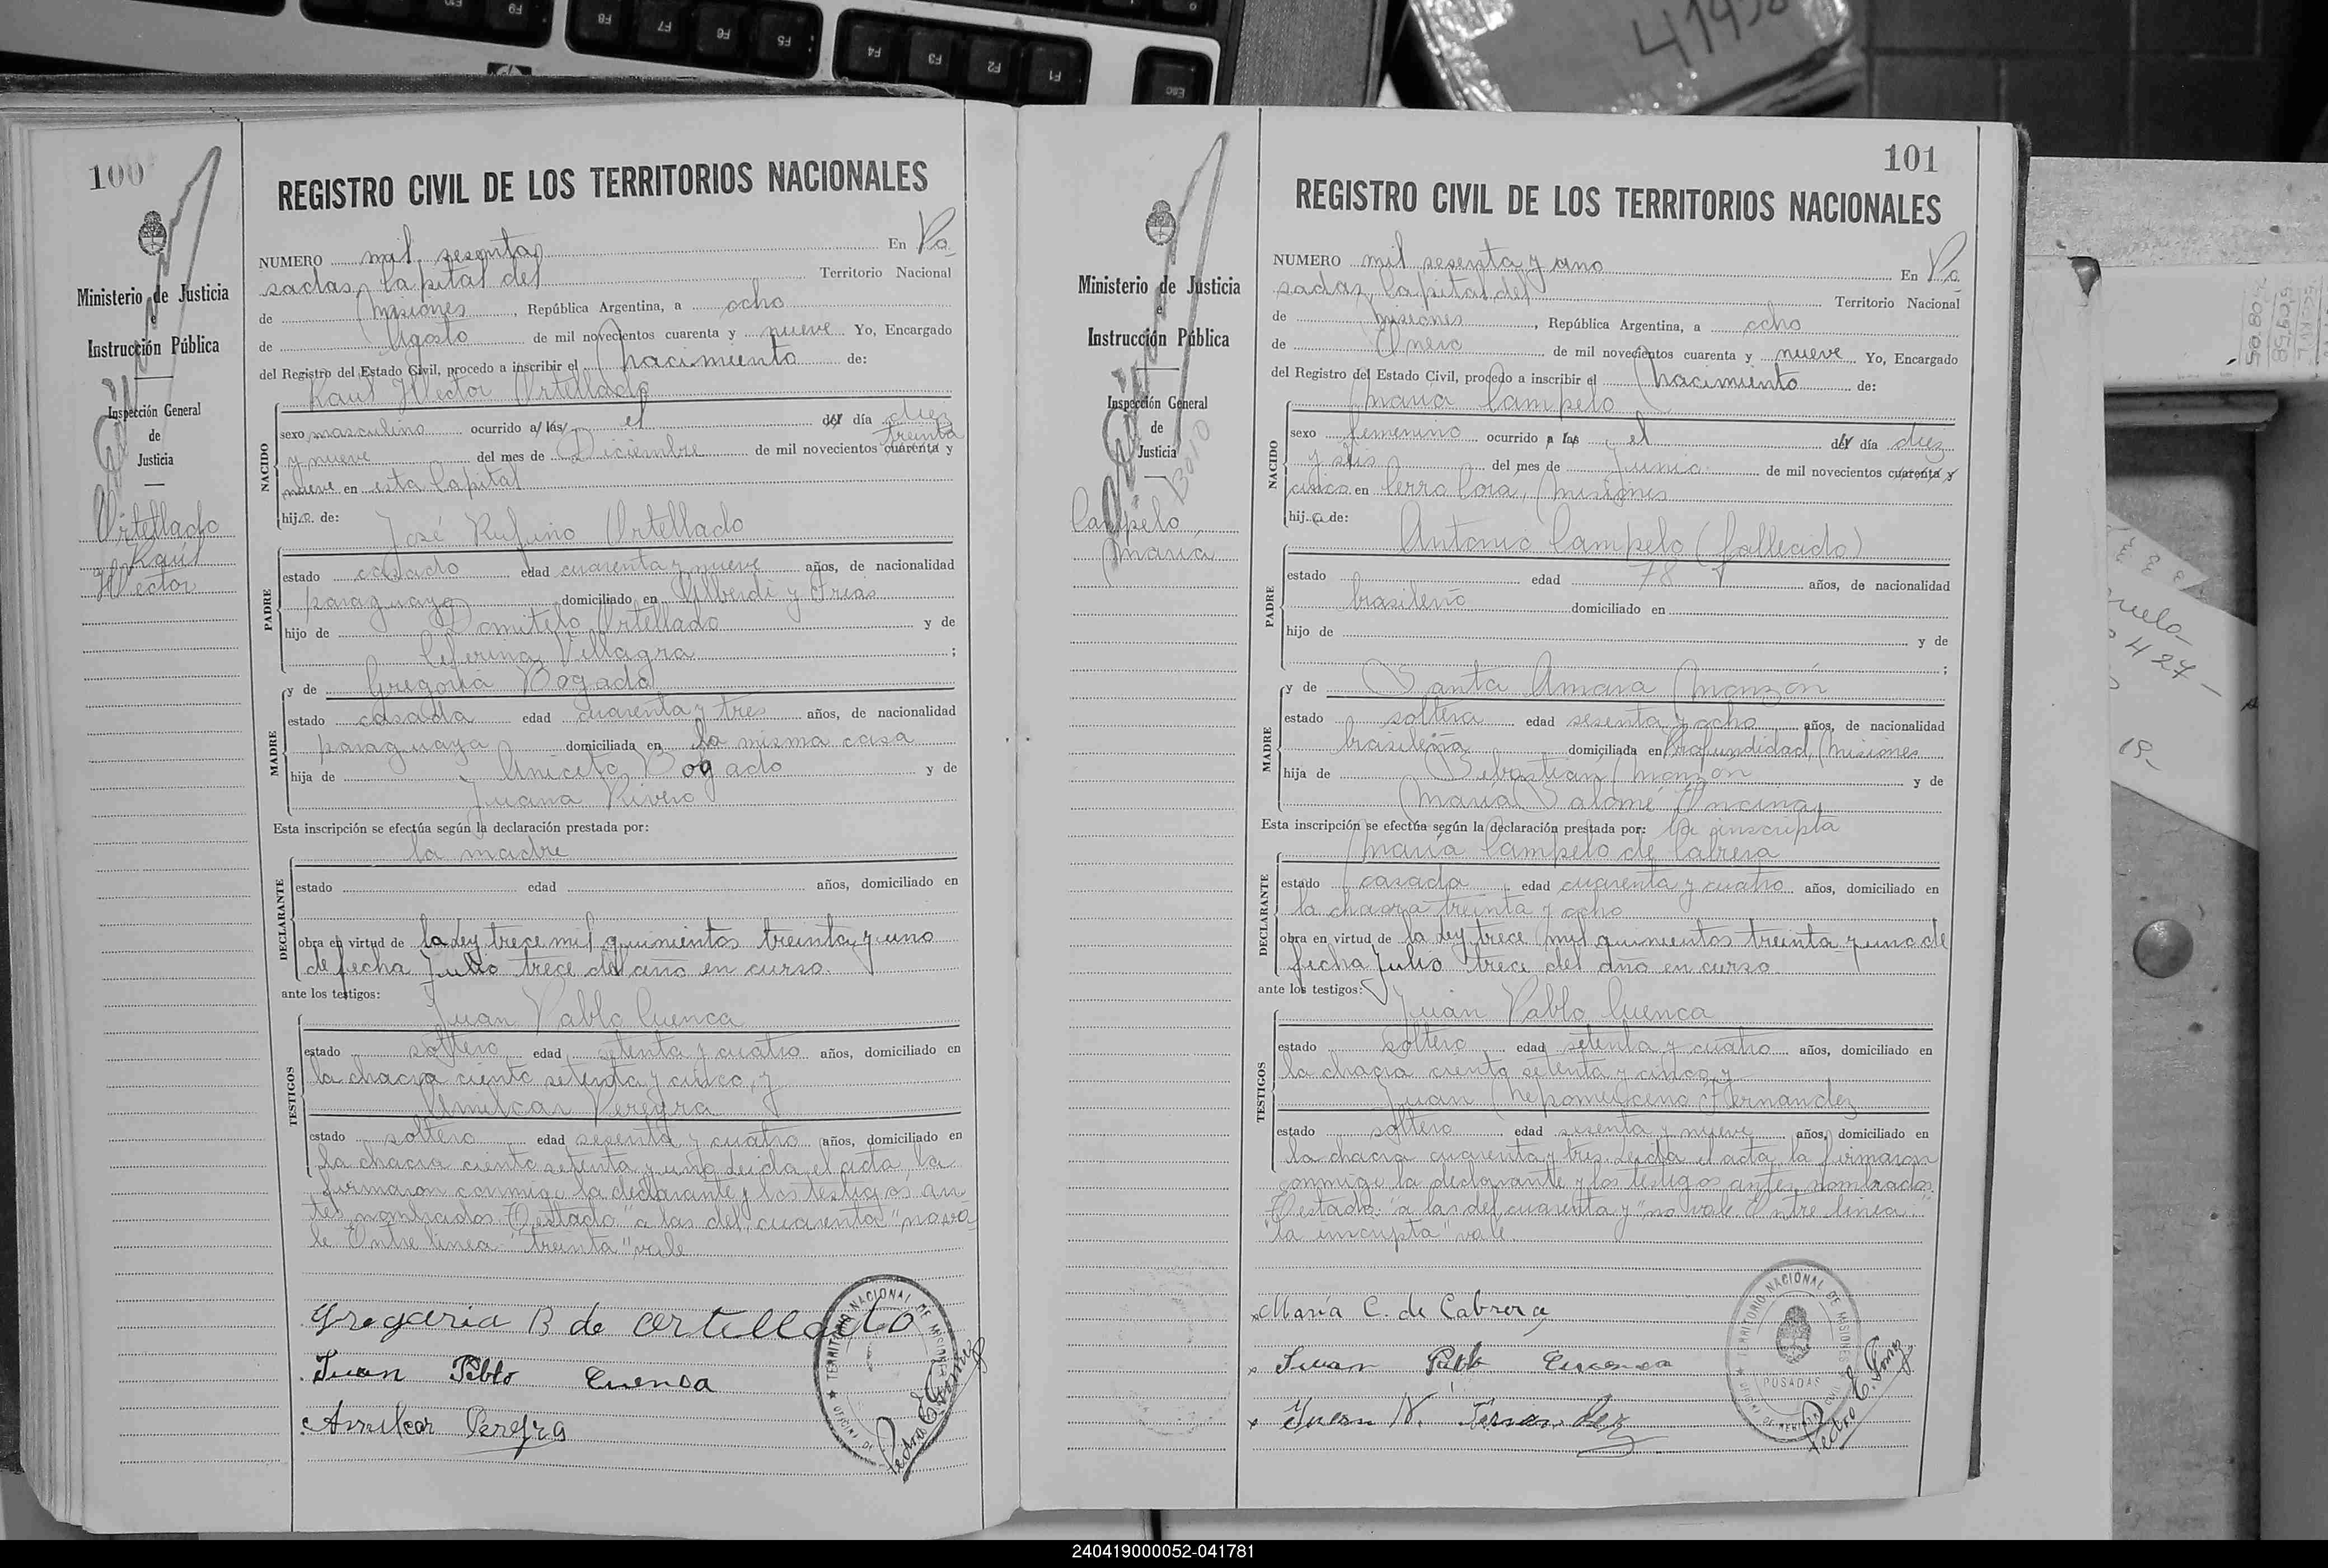 100
REGISTRO CIVIL DE LOS TERRITORIOS NACIONALES
NUMERO mil sesenta En Po-
sadas, Capital del Territorio Nacional
de Misiones, República Argentina, a ocho
de Agosto de mil novecientos cuarenta y nueve Yo, Encargado
del Registro del Estado Civil, procedo a inscribir el nacimiento de:
Raul Hector Ortellado
sexo masculino ocurrido a las el del día diez
treinta
y nueve del mes de Diciembre de mil novecientos cuarenta y
nueve en esta Capital
hijo de:
José Rufino Ortellado
estado casado edad cuarenta y nueve años, de nacionalidad
paraguayo domiciliado en Alberdi y Frias
hijo de Domitilo Ortellado y de
Ceferina Villagra ;
y de Gregoria Bogado
estado casada edad cuarenta y tres años, de nacionalidad
paraguaya domiciliada en la misma casa
hija de Aniceto Bogado y de
Juana Rivero
Esta inscripción se efectúa según la declaración prestada por:
la madre
estado edad años, domiciliado en
obra en virtud de la Ley trece mil quinientos treinta y uno
de fecha Julio trece del año en curso.
ante los testigos:
Juan Pablo Cuenca
estado soltero edad setenta y cuatro años, domiciliado en
la chacra ciento setenta y cinco, y
Amilcar Pereyra
estado soltero edad sesenta y cuatro años, domiciliado en
la chacra ciento setenta y uno Leida el acta, la
firmaron conmigo la declarante y los testigos an-
tes nombrados. Testado "a las del, cuarenta" no va-
le Entre linea "treinta" vale
Gregoria B de Ortellado
Juan Pablo Cuenca
Amilcar Pereyra
TERRITORIO NACIONAL DE MISIONES
Pedro E. Gomez
Ministerio de Justicia
e
Instrucción Pública
Inspección General
de
Justicia
Ortellado
Raúl
Hector
NACIDO
PADRE
MADRE
DECLARANTE
TESTIGOS
101
REGISTRO CIVIL DE LOS TERRITORIOS NACIONALES
NUMERO mil sesenta y uno En Po-
sadas, Capital del Territorio Nacional
de Misiones, República Argentina, a ocho
de Enero de mil novecientos cuarenta y nueve Yo, Encargado
del Registro del Estado Civil, procedo a inscribir el nacimiento de:
Maria Campelo
sexo femenino ocurrido a las el del día diez
y seis del mes de Junio de mil novecientos cuarenta y
cinco en Cerro Cora, Misiones
hija de:
Antonio Campelo (fallecido)
estado edad 78 años, de nacionalidad
brasileño domiciliado en
hijo de y de
;
y de Santa Amara Monzón
estado soltera edad sesenta y ocho años, de nacionalidad
brasileña domiciliada en Profundidad, Misiones
hija de Sebastian Monzón y de
Maria Salomé Encina
Esta inscripción se efectúa según la declaración prestada por: la inscripta
Maria Campelo de Cabrera
estado casada edad cuarenta y cuatro años, domiciliado en
la chacra treinta y ocho
obra en virtud de la Ley trece mil quinientos treinta y uno de
fecha Julio trece del año en curso.
ante los testigos:
Juan Pablo Cuenca
estado soltero edad setenta y cuatro años, domiciliado en
la chacra ciento setenta y cinco y
Juan Nepomuceno Fernandez
estado soltero edad sesenta y nueve años, domiciliado en
la chacra cuarenta y tres. Leida el acta, la firmaron
conmigo la declarante y los testigos antes nombrados.
Testado "a las del cuarenta y" no vale. Entre linea:
"la inscripta" vale.
María C. de Cabrera
Juan Pablo Cuenca
Juan N. Fernandez
TERRITORIO NACIONAL DE MISIONES
POSADAS
Pedro E. Gomez
Ministerio de Justicia
e
Instrucción Pública
Inspección General
de
Justicia
Campelo
Maria
NACIDO
PADRE
MADRE
DECLARANTE
TESTIGOS
F9
F8
F7
F6
F5
F4
F3
F2
F1
Esc
240419000052-041781